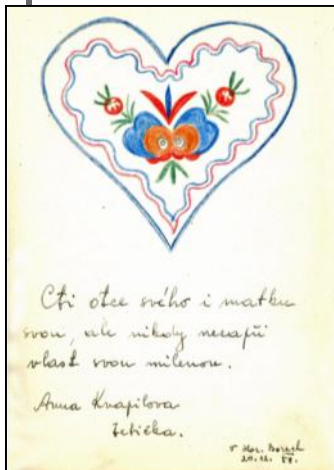 Cti otce svého i matku
svou, ale nikdy nezapři
vlast svou milenou.
Anna Knapilova
tetička.
V Hor.
20.12. 58.